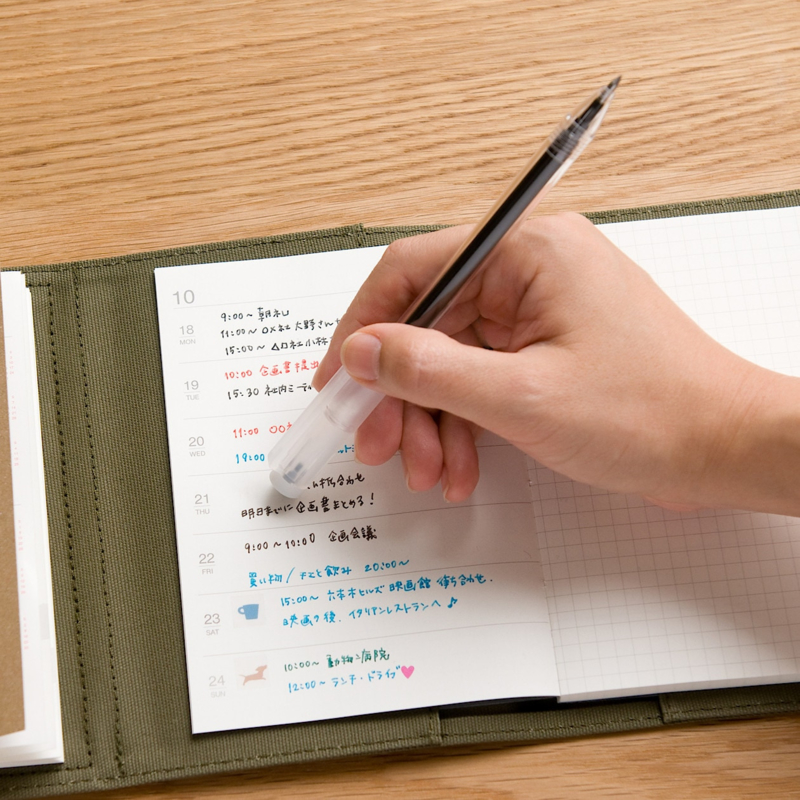 10
18
MON
9:00〜 朝礼
11:00〜 〇×社 大野さん
15:00〜 △口社 小林
19
TUE
10:00 企画書提出
15:30 社内ミーティ
20
WED
11:00 〇〇
19:00
21
THU
打ち合わせ
明日までに企画書まとめる!
22
FRI
9:00〜10:00 企画会議
買い物/ チエと飲み 20:00〜
23
SAT
15:00〜 六本木ヒルズ 映画館 待ち合わせ.
映画の後. イタリアンレストランへ♪
24
SUN
10:00〜 動物病院
12:00〜 ランチ・ドライブ